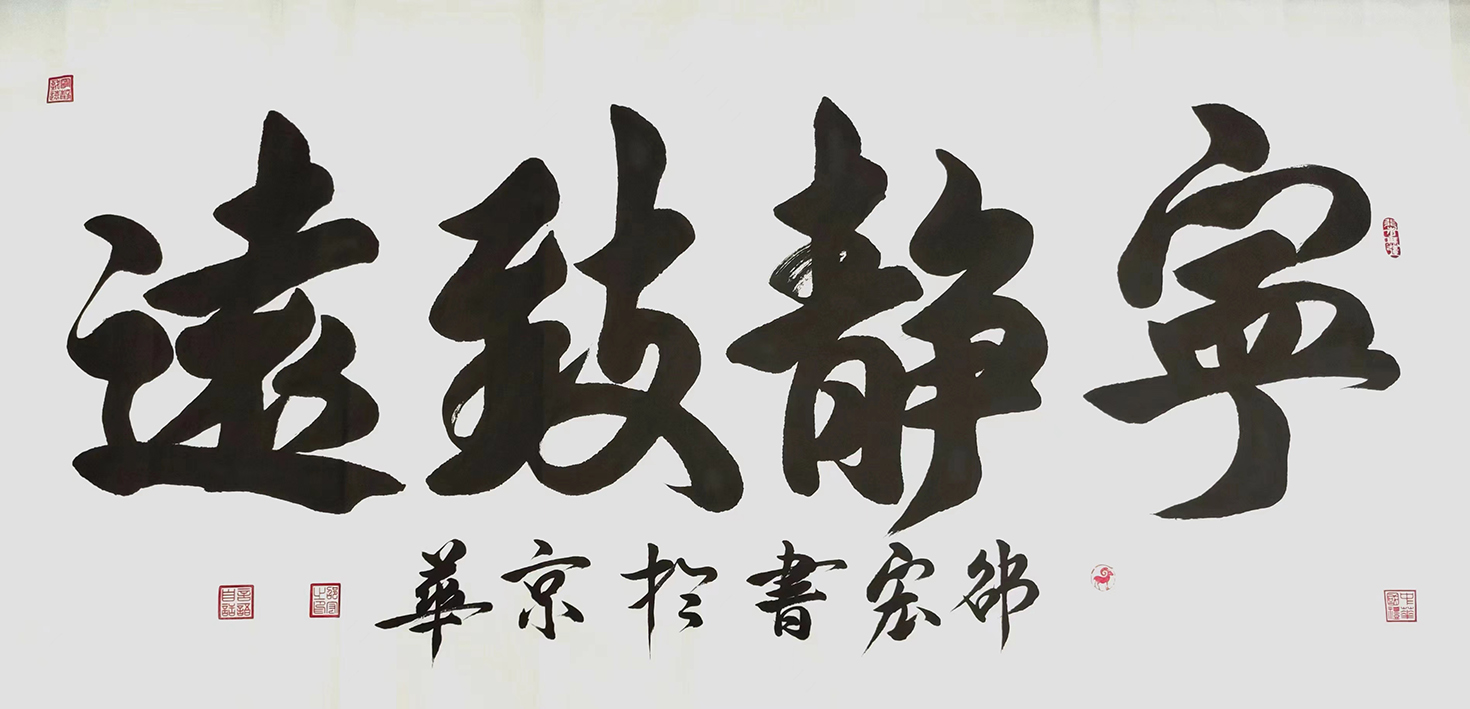 寧静致遠
邵宏書於京華